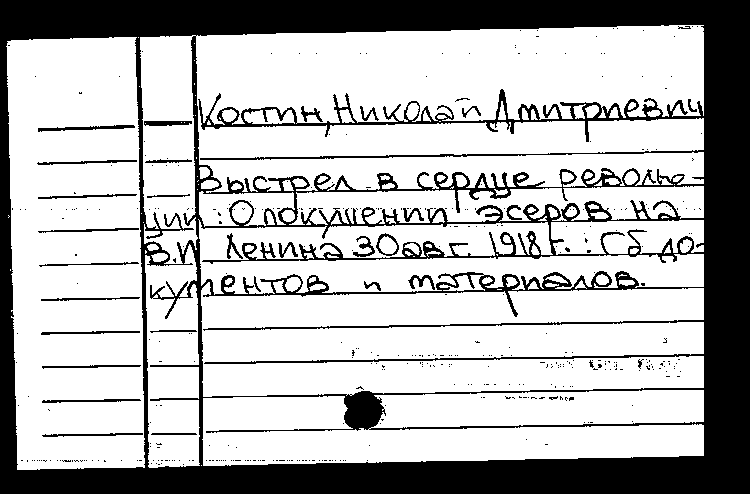 Костин, Николай Дмитриевич
Выстрел в сердце револю-
ции: О покушении эсеров на
В.И. Ленина 30 авг. 1918 г.: Сб. до-
кументов и материалов.